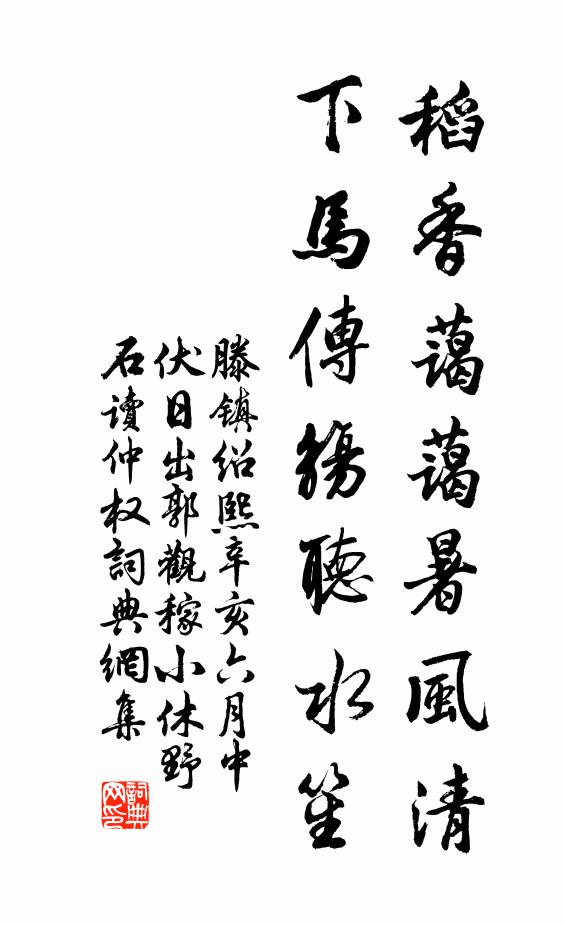 稻香藹藹暑風清
下馬傳觴聽水笙
滕鎮紹熙辛亥六月中
伏日出郭觀稼小休野
石讀仲权詞典網集
詞典网印